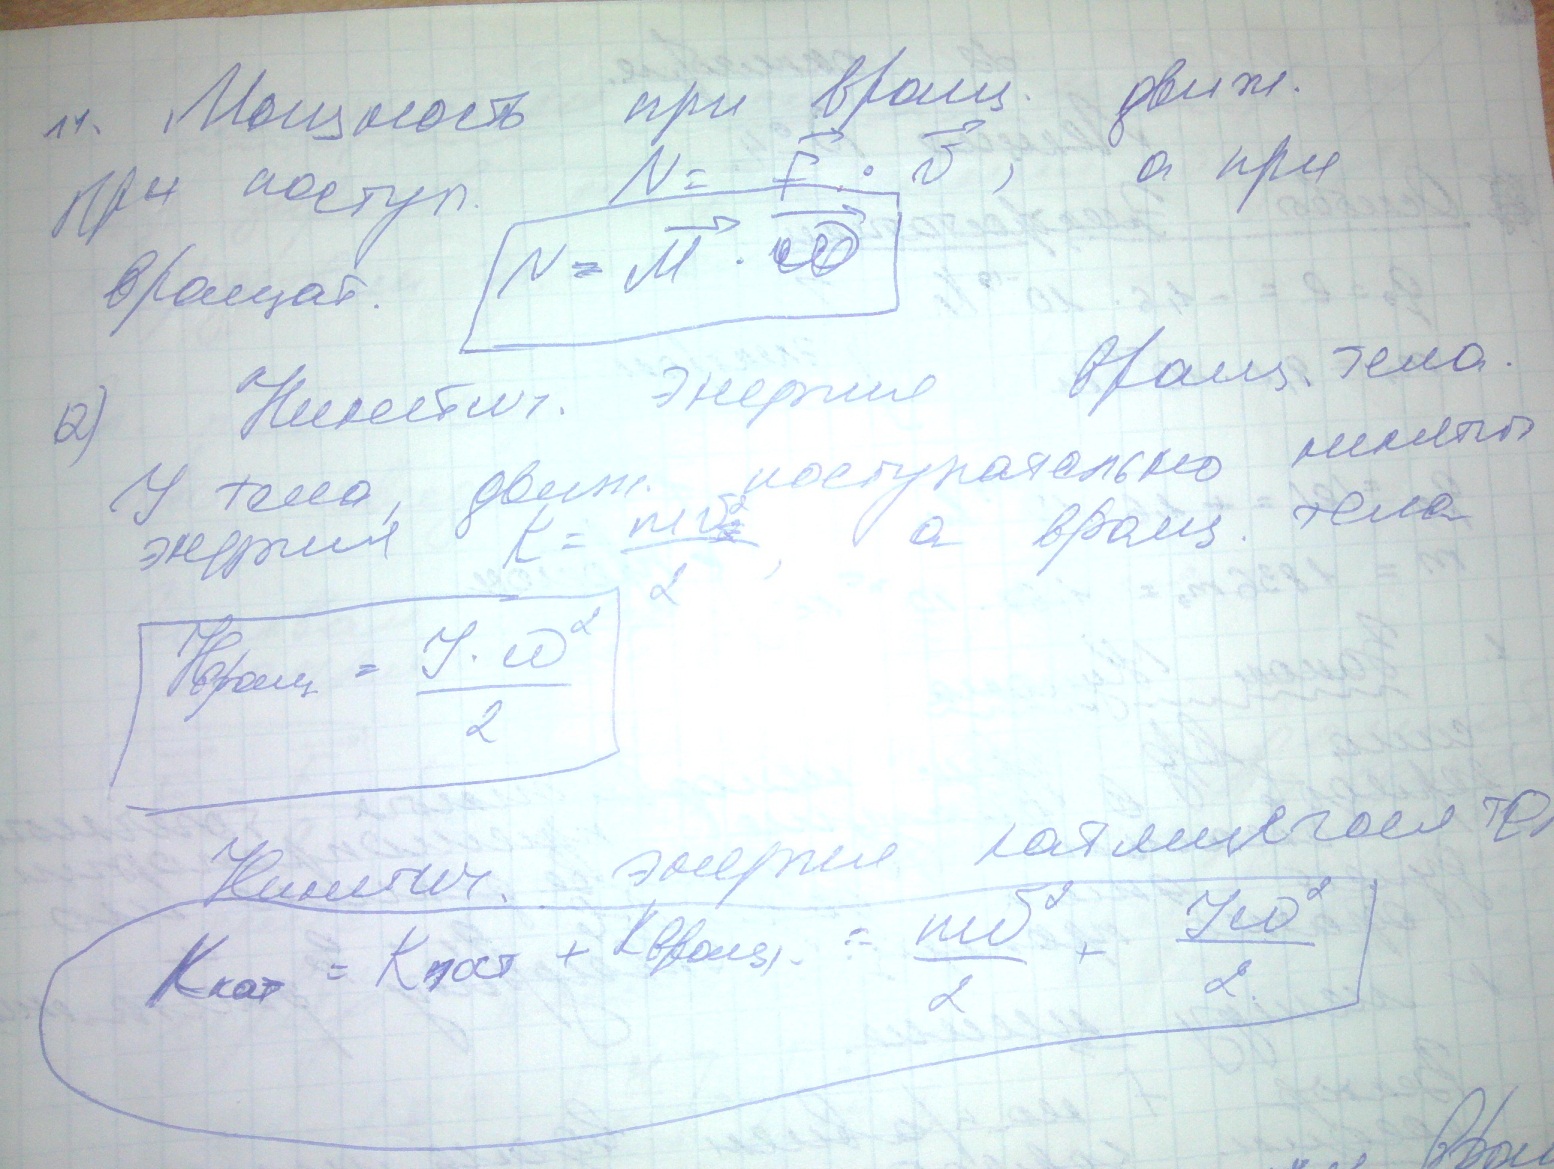 11. Мощность при вращ. движ.
При поступ. N = F · v, а при
вращат. N = M · ω
12) Кинетич. энергия вращ. тела.
У тела, движ. поступательно
энергия K = mv²/2, а вращ. тела
Kвращ = J · ω²/2
Кинетич. энергия катящегося
Kкат = Kпост + Kвращ. = mv²/2 + Jω²/2